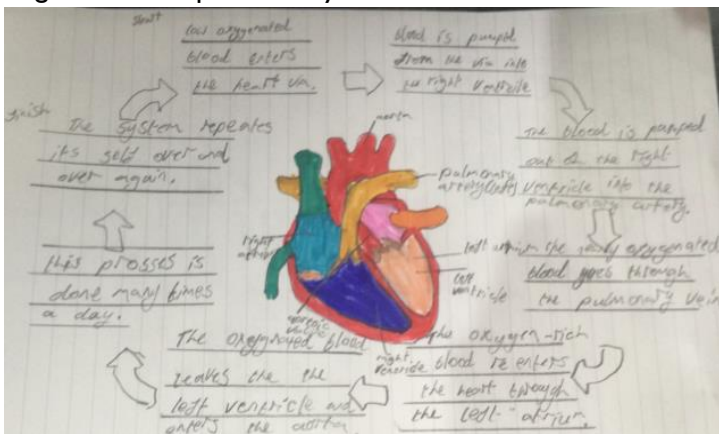 Start
low oxygenated
blood enters
the heart via.
blood is pumped
from the vin into
the right ventricle
The blood is pumped
out of the right
ventricle into the
pulmonary artery.
the newly oxygenated
blood goes through
the pulmonary vein
The oxygen-rich
blood re enters
the heart through
the left atrium.
The oxygenated blood
leaves the the
left ventricle and
enters the aorta
this prosses is
done many times
a day.
finish
The system repeates
its self over and
over again.
aorta
pulmonary
right
left atrium
left
ventricle
right
ventricle